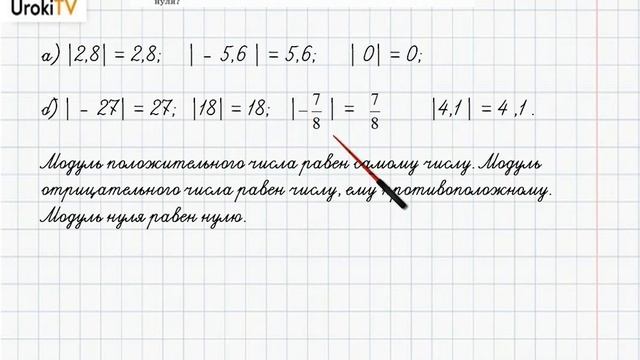 UrokiTV
нуля?
а) |2,8| = 2,8; | - 5,6 | = 5,6; | 0| = 0;
б) | - 27| = 27; |18| = 18; |-7/8| = 7/8 |4,1 | = 4 ,1 .
Модуль положительного числа равен самому числу. Модуль
отрицательного числа равен числу, ему противоположному.
Модуль нуля равен нулю.